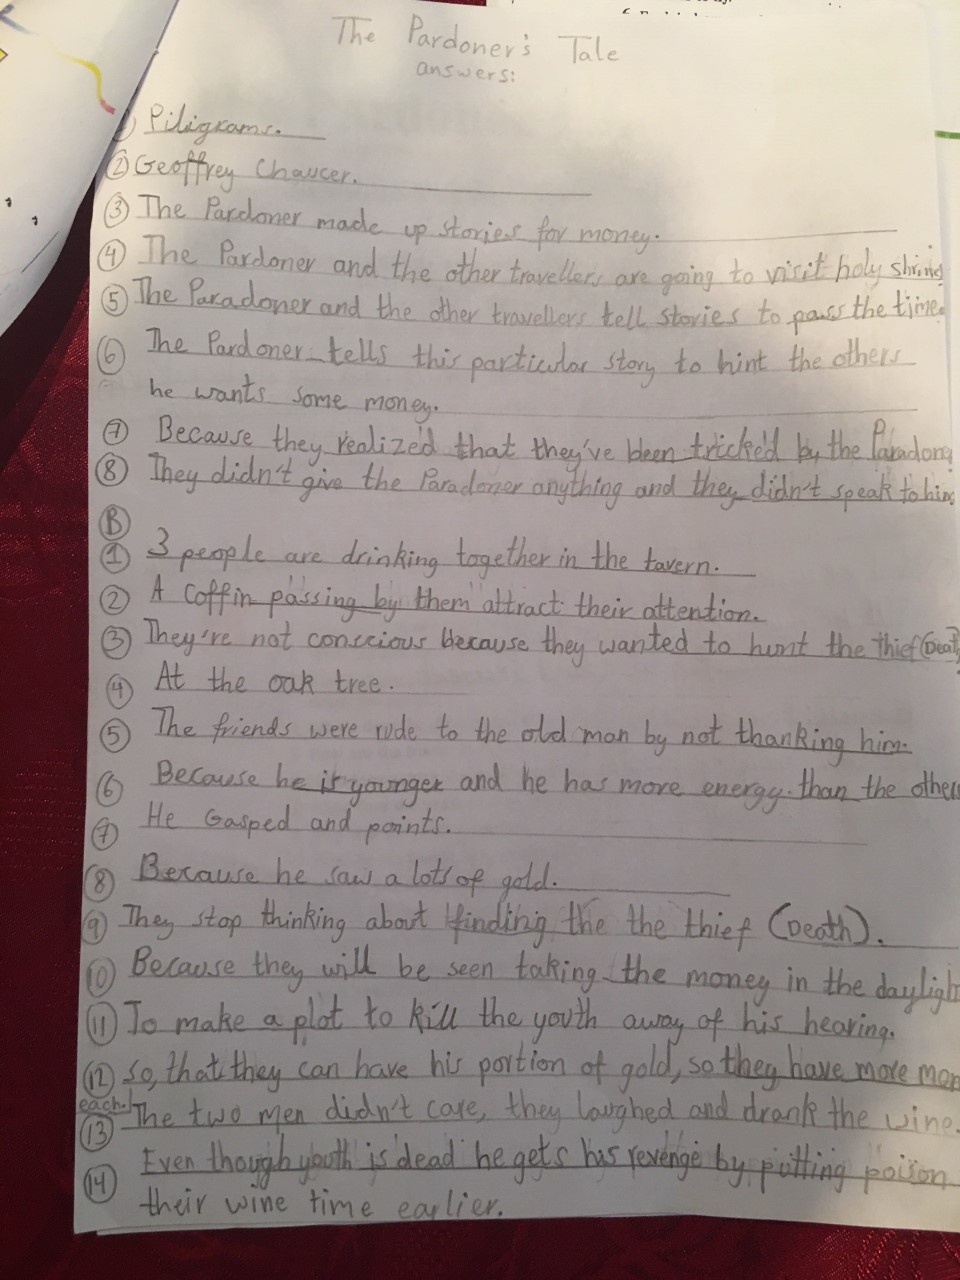 The Pardoner's Tale
answers:
Piligrams.
② Geoffrey Chaucer.
③ The Pardoner made up stories for money.
④ The Pardoner and the other travellers are going to visit holy shrine
⑤ The Paradoner and the other travellers tell stories to pass the time.
⑥ The Pardoner tells this particular story to hint the others
he wants some money.
⑦ Because they realized that they've been tricked by the Paradoner
⑧ They didn't give the Paradoner anything and they didn't speak to him
Ⓑ
① 3 people are drinking together in the tavern.
② A coffin passing by them attract their attention.
③ They're not conscious because they wanted to hunt the thief (Death
④ At the oak tree.
⑤ The friends were rude to the old man by not thanking him.
⑥ Because he is younger and he has more energy than the others
⑦ He Gasped and points.
⑧ Because he saw a lots of gold.
⑨ They stop thinking about finding the the thief (Death).
⑩ Because they will be seen taking the money in the dayligh
⑪ To make a plot to kill the youth away of his hearing.
⑫ so, that they can have his portion of gold, so they have more mon
each.
⑬ The two men didn't care, they laughed and drank the wine.
⑭ Even though youth is dead he gets his revenge by putting poison
their wine time earlier.